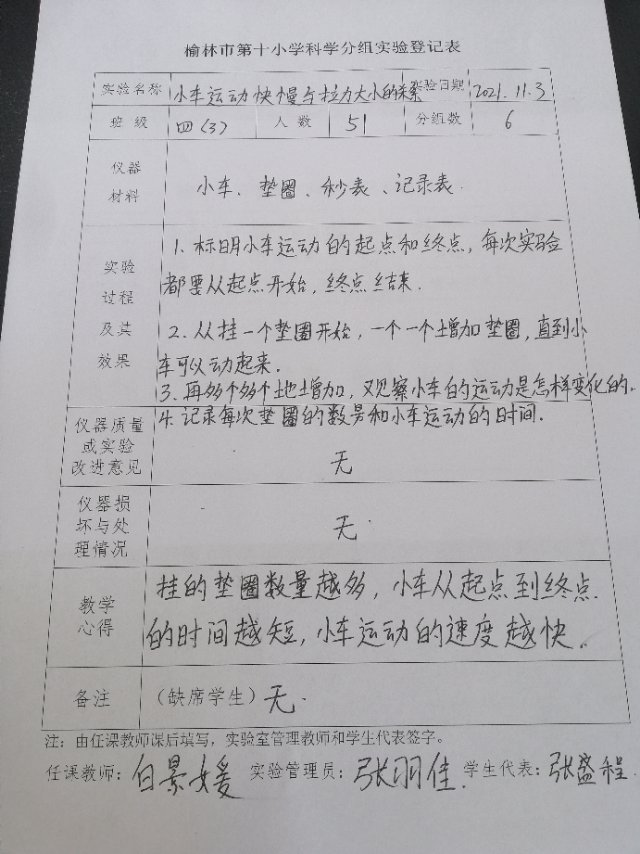 榆林市第十小学科学分组实验登记表
实验名称 小车运动快慢与拉力大小的关系 实验日期 2021.11.3
班级 四(3) 人数 51 分组数 6
仪器
材料
小车、垫圈、秒表、记录表.
实验
过程
及其
效果
1. 标明小车运动的起点和终点,每次实验
都要从起点开始,终点结束.
2. 从挂一个垫圈开始,一个一个增加垫圈,直到小
车可以动起来.
3. 再多个多个地增加,观察小车的运动是怎样变化的。
4. 记录每次垫圈的数另和小车运动的时间.
仪器质量
或实验
改进意见
无
仪器损
坏与处
理情况
无.
教学
心得
挂的垫圈数量越多,小车从起点到终点.
的时间越短,小车运动的速度越快。
备注 (缺席学生) 无.
注:由任课教师课后填写,实验室管理教师和学生代表签字。
任课教师:白景媛 实验管理员:张羽佳. 学生代表:张盛程